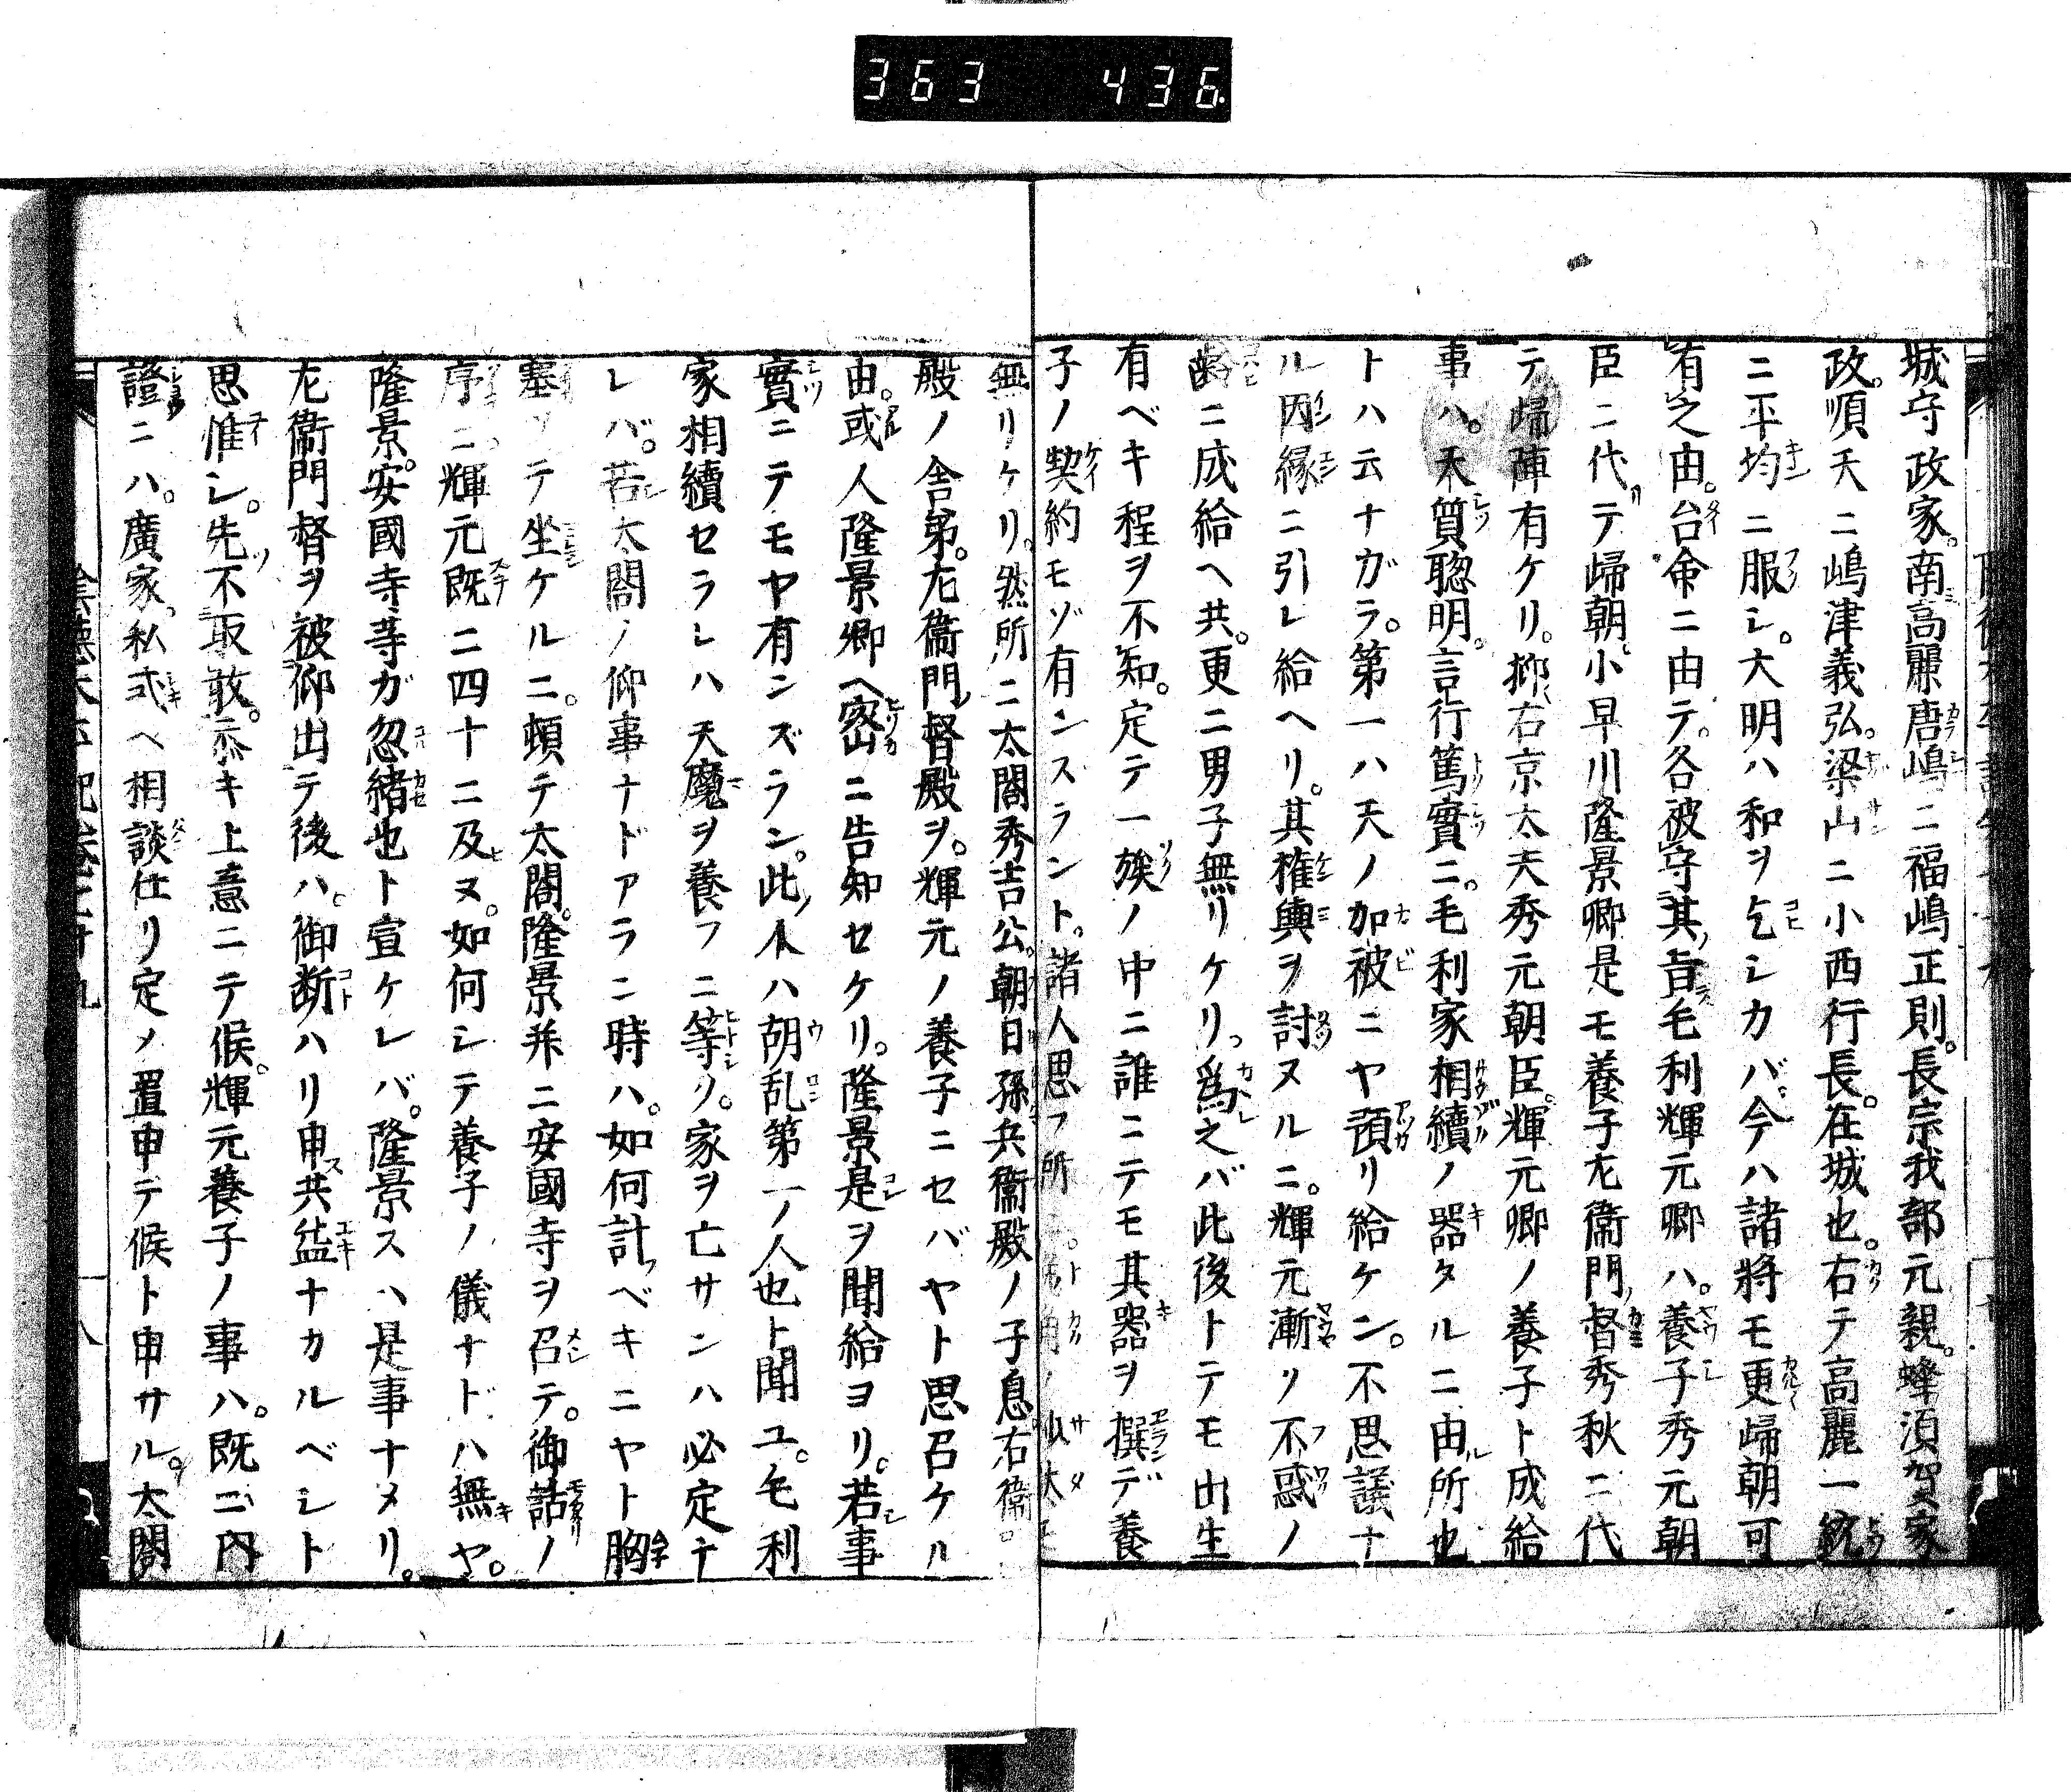 363 436
城守政家。南高麗唐嶋ニ福嶋正則。長宗我部元親。蜂須賀家
政。順天ニ嶋津義弘。梁山ニ小西行長。在城也。右テ高麗一統
ニ平均ニ服シ。大明ハ和ヲ乞シカバ。今ハ諸將モ更歸朝可
有之由。台命ニ由テ。各被守其旨毛利輝元卿ハ。養子秀元朝
臣ニ代テ歸朝。小早川隆景卿是モ養子左衞門督秀秋ニ代
テ歸陣有ケリ。抑右京太夫秀元朝臣。輝元卿ノ養子ト成給
事ハ。天質聰明。言行篤實ニ。毛利家相續ノ器タルニ由所也
トハ云ナガラ。第一ハ天ノ加被ニヤ預リ給ケン。不思議ナ
ル因縁ニ引レ給ヘリ。其權輿ヲ討ヌルニ。輝元漸リ不惑ノ
齡ニ成給ヘ共。更ニ男子無リケリ。爲之バ此後トテモ出生
有ベキ程ヲ不知。定テ一族ノ中ニ誰ニテモ其器ヲ撰デ養
子ノ契約モゾ有ンスラント。諸人思フ所
無リケリ。然所ニ太閤秀吉公。朝日孫兵衞殿ノ子息右衞
殿ノ舎弟。左衞門督殿ヲ。輝元ノ養子ニセバヤト思召ケル
由。或人隆景卿ヘ密ニ告知セケリ。隆景是ヲ聞給ヨリ。若事
實ニテモヤ有ンズラン。此人ハ胡乱第一ノ人也ト聞ユ。毛利
家相續セラレハ天魔ヲ養フニ等リ。家ヲ亡サンハ必定テ
レバ。若太閤ノ仰事ナドアランニ時ハ。如何計ベキニヤト胸
塞ツテ坐ケルニ。頓テ太閤。隆景并ニ安國寺ヲ召テ。御話ノ
序ニ輝元既ニ四十ニ及ヌ。如何シテ養子ノ儀ナドハ無ヤ。
隆景。安國寺等ガ忽緒也ト宣ケレバ。隆景スハ是事ナメリ。
左衞門督ヲ被仰出テ後ハ。御断ハリ申共益ナカルベシト
思惟シ。先不取敢。忝キ上意ニテ候。輝元養子ノ事ハ。既ニ内
證ニハ。廣家私式ヘ相談仕リ定メ置申テ候ト申サル。太閤
十八